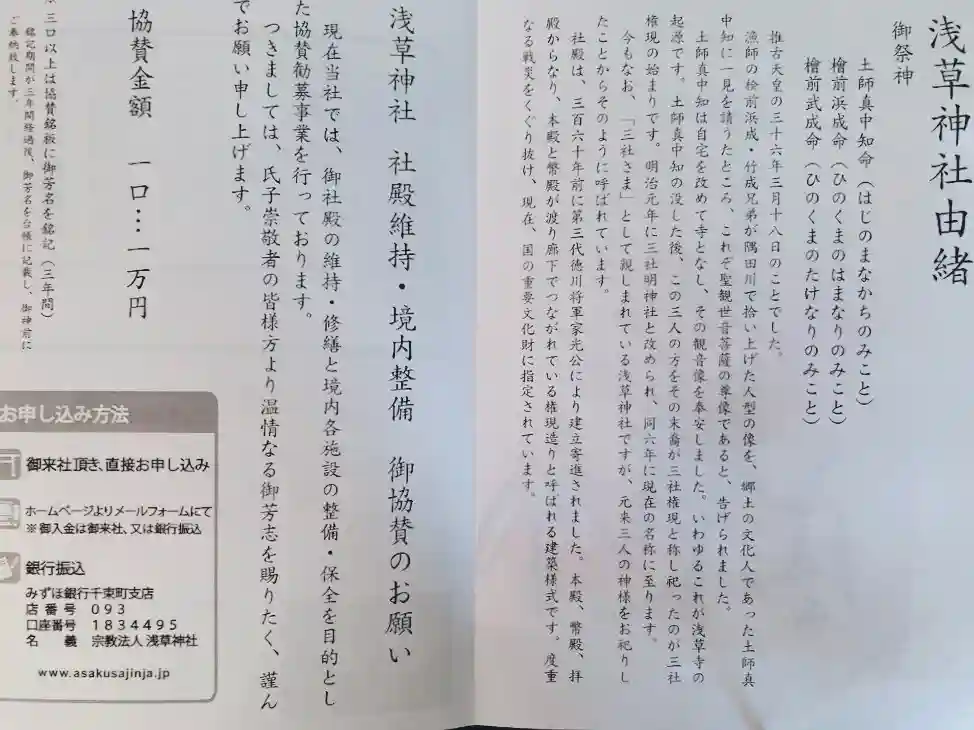 浅草神社由緒
御祭神
土師真中知命（はじのまなかちのみこと）
檜前浜成命（ひのくまのはまなりのみこと）
檜前武成命（ひのくまのたけなりのみこと）
推古天皇の三十六年三月十八日のことでした。
漁師の檜前浜成・竹成兄弟が隅田川で拾い上げた人型の像を、郷土の文化人であった土師真
中知に一見を請うたところ、これぞ聖観世音菩薩の尊像であると、告げられました。
土師真中知は自宅を改めて寺となし、その観音像を奉安しました。いわゆるこれが浅草寺の
起源です。土師真中知の没した後、この三人の方をその末裔が三社権現と称し祀ったのが三社
権現の始まりです。明治元年に三社明神社と改められ、同六年に現在の名称に至ります。
今もなお、「三社さま」として親しまれている浅草神社ですが、元来三人の神様をお祀りし
たことからそのように呼ばれています。
社殿は、三百六十年前に第三代徳川将軍家光公により建立寄進されました。本殿、幣殿、拝
殿からなり、本殿と幣殿が渡り廊下でつながれている権現造りと呼ばれる建築様式です。度重
なる戦災をくぐり抜け、現在、国の重要文化財に指定されています。
浅草神社　社殿維持・境内整備　御協賛のお願い
現在当社では、御社殿の維持・修繕と境内各施設の整備・保全を目的とし
た協賛勧募事業を行っております。
つきましては、氏子崇敬者の皆様方より温情なる御芳志を賜りたく、謹ん
でお願い申し上げます。
協賛金額　一口…一万円
※三口以上は協賛銘板に御芳名を銘記（三年間）
銘記期間が三年間経過後、御芳名を台帳に記載し、御神前に
ご奉納致します。
お申し込み方法
御来社頂き、直接お申し込み
ホームページよりメールフォームにて
※御入金は御来社、又は銀行振込
銀行振込
みずほ銀行千束町支店
店番号　０９３
口座番号　１８３４４９５
名　義　宗教法人 浅草神社
www.asakusajinja.jp